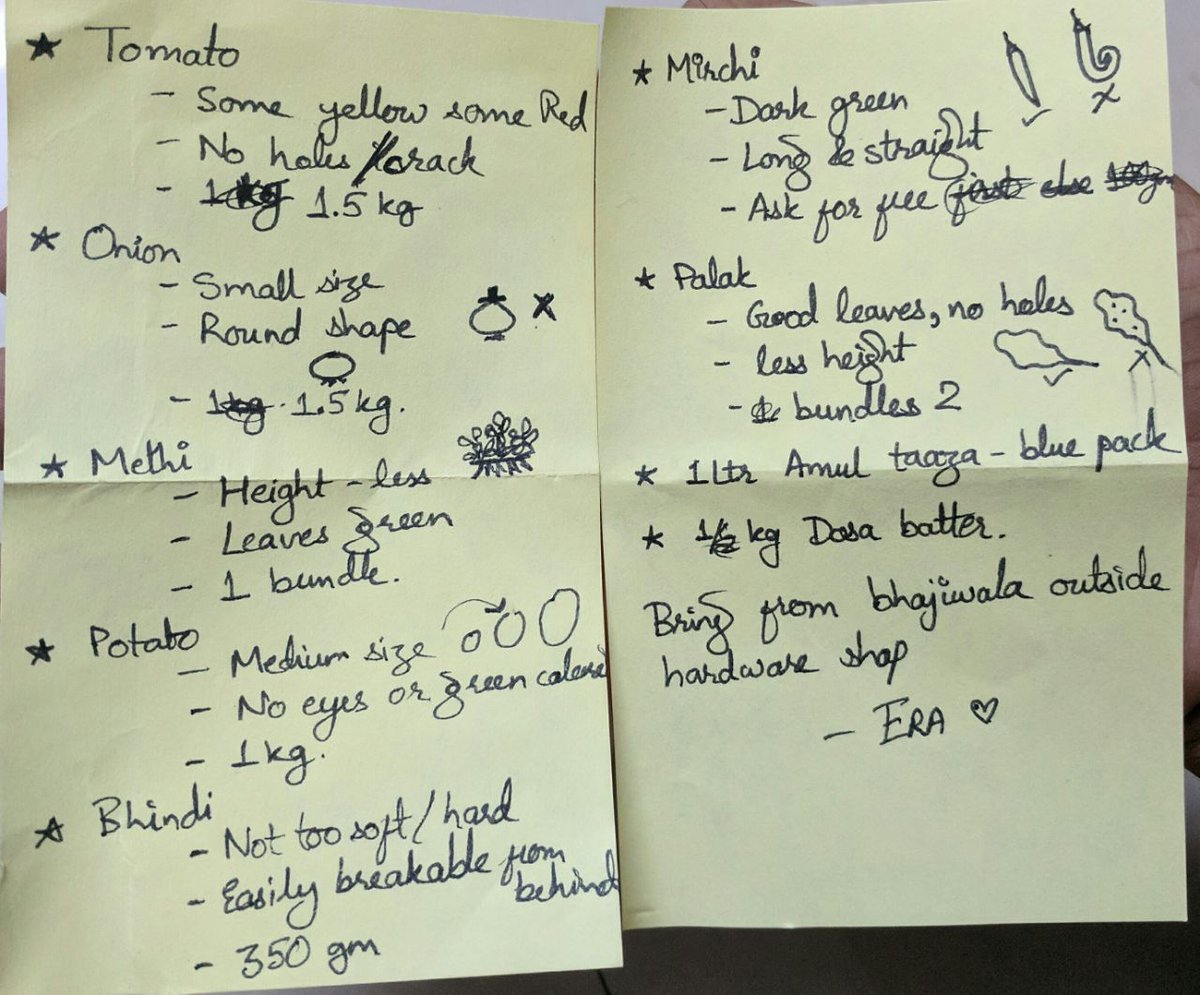 ★ Tomato
- Some yellow some Red
- No holes / crack
- 1.5 kg
★ Onion
- Small size
- Round shape
- 1.5 kg.
★ Methi
- Height - less
- Leaves green
- 1 bundle.
★ Potato
- Medium size
- No eyes or green colored
- 1 kg.
★ Bhindi
- Not too soft / hard
- Easily breakable from
behind
- 350 gm
★ Mirchi
- Dark green
- Long & straight
- Ask for free
★ Palak
- Good leaves, no holes
- less height
- bundles 2
★ 1 Ltr Amul taaza - blue pack
★ kg Dosa batter.
Bring from bhajiwala outside
hardware shop
- ERA ♡